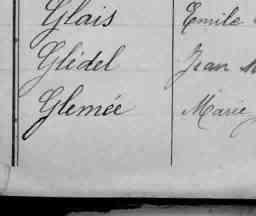 Glais Emile
Glédel Jean M
Glemée Marie